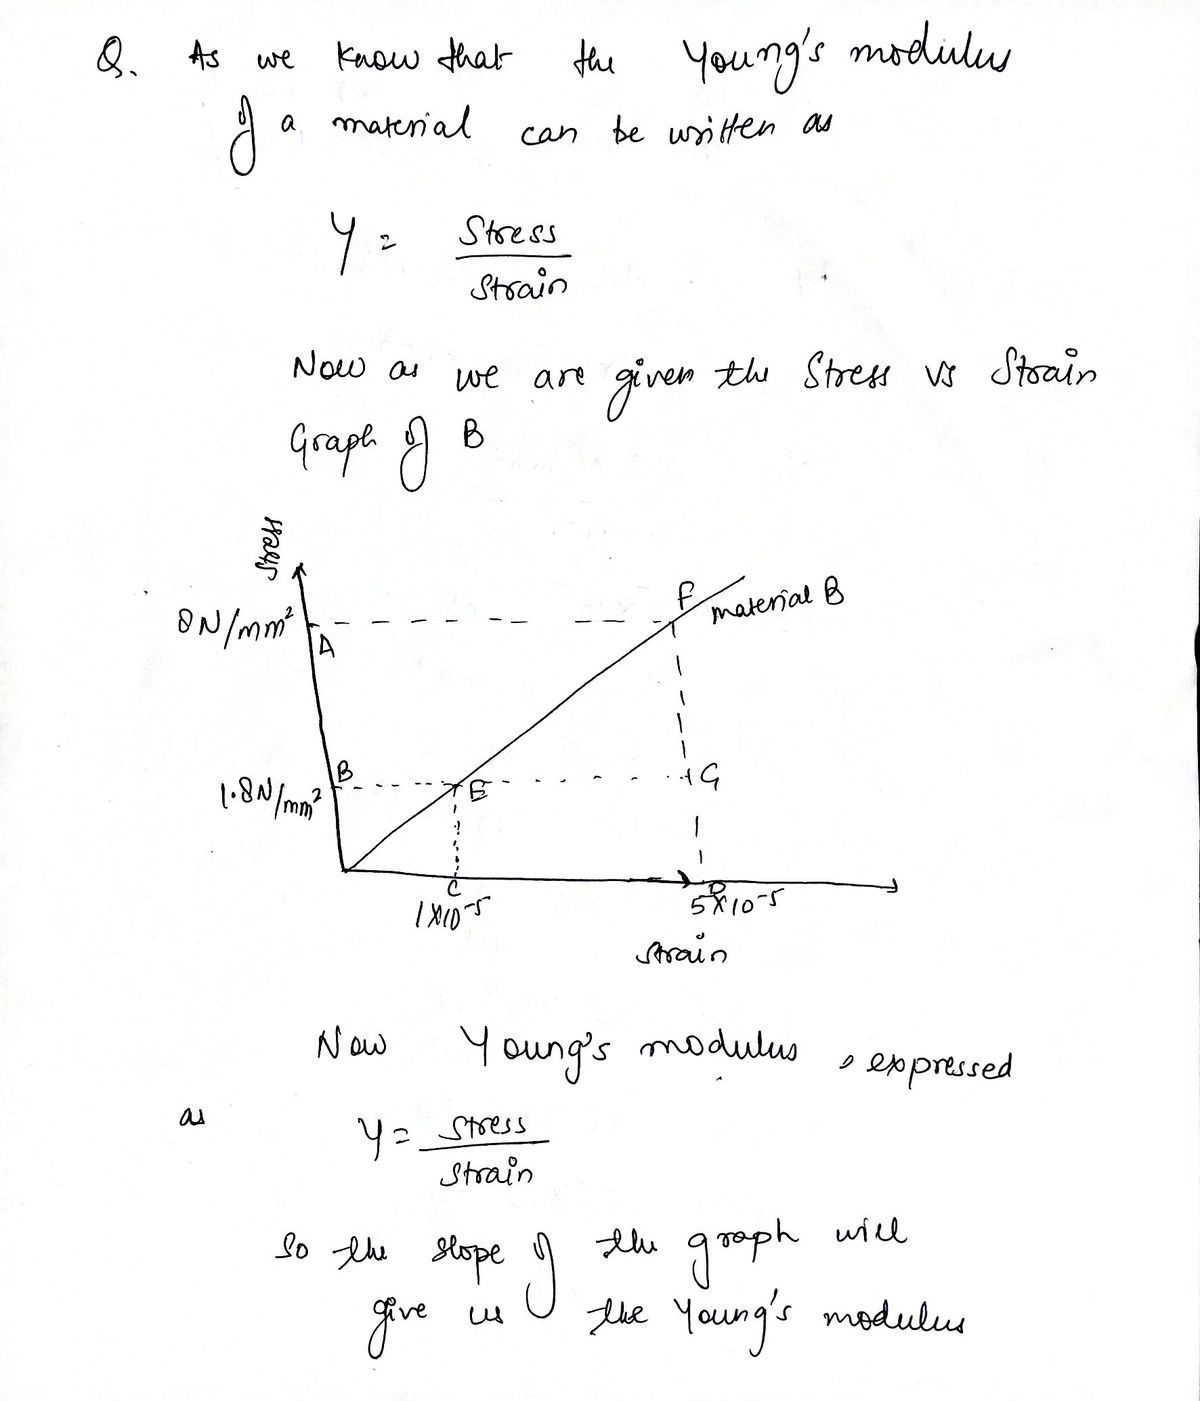 Q. As we know that the Young's modulus
of a material can be written as
Y = Stress
Strain
Now as we are given the Stress vs Strain
Graph of B
Stress
8N/mm²
A
F
material B
B
1.8N/mm²
E
G
C
D
1×10⁻⁵
5×10⁻⁵
Strain
Now Young's modulus, expressed
as
Y = Stress
Strain
So the slope of the graph will
give us the Young's modulus